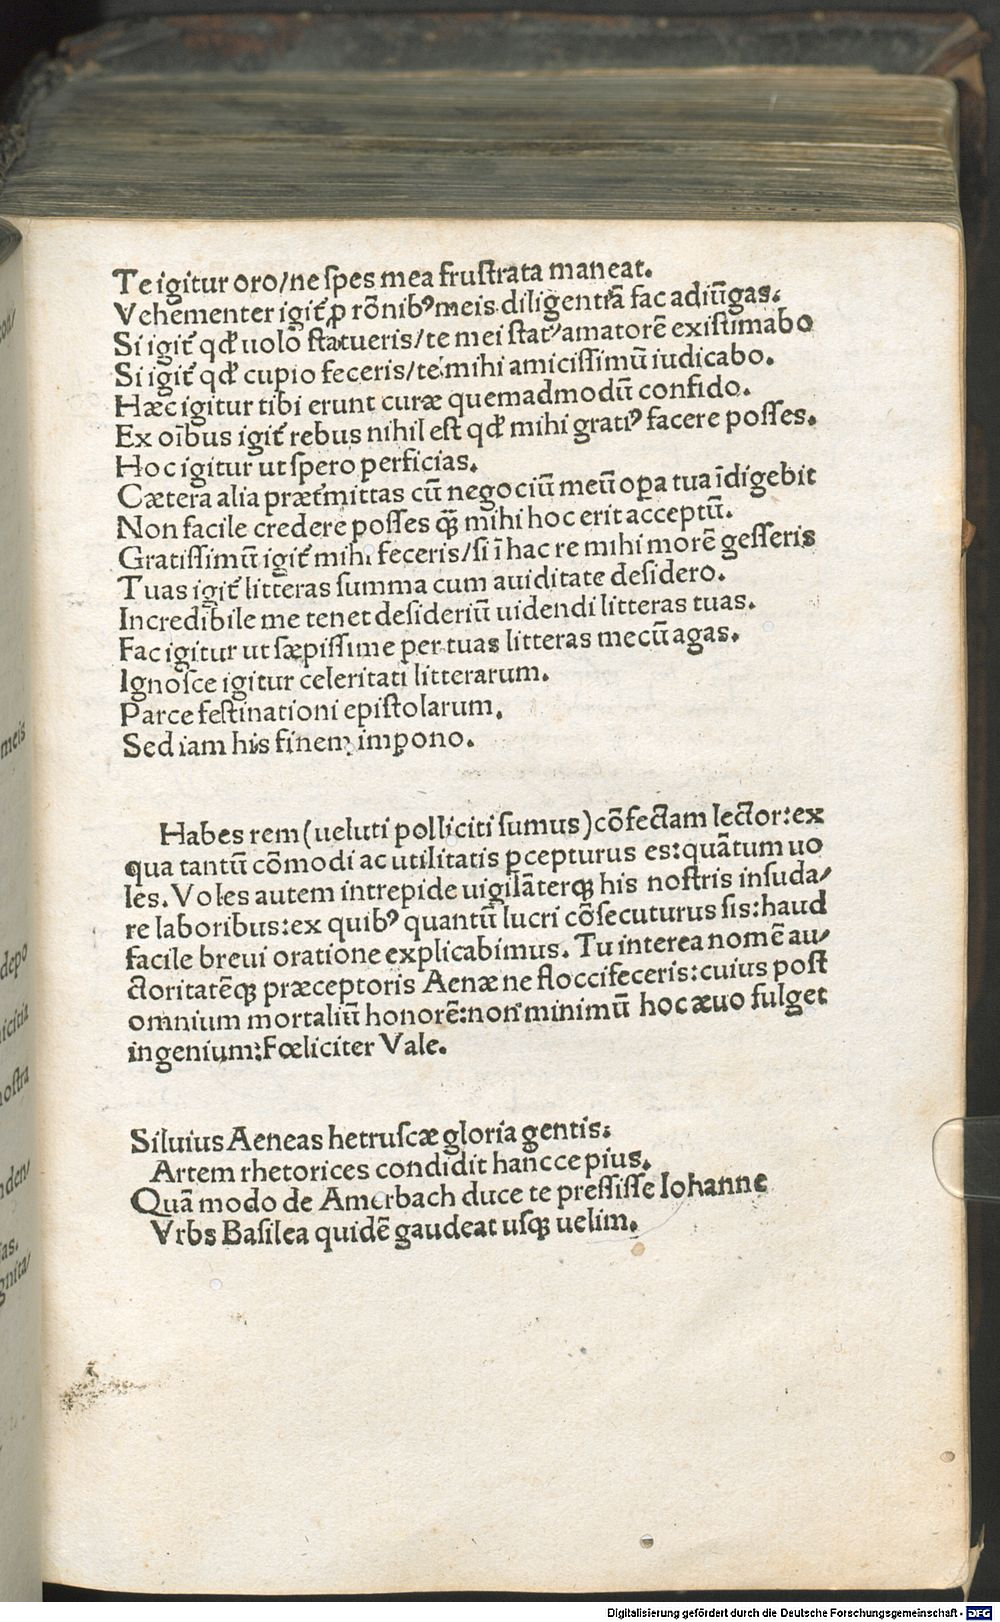 Te igitur oro/ne spes mea frustrata maneat.
Vehementer igit᷑ ꝓ rōnibꝰ meis diligentiā fac adiūgas.
Si igit᷑ qđ uolo statueris/te mei statꝰ amatorē existimabo
Si igit᷑ qđ cupio feceris/te mihi amicissimū iudicabo.
Hæc igitur tibi erunt curæ quemadmodū confido.
Ex oībus igit᷑ rebus nihil est qđ mihi gratiꝰ facere posses.
Hoc igitur ut spero perficias.
Cætera alia præt᷑mittas cū negociū meū oꝑa tua īdigebit
Non facile credere posses qꝫ̄ mihi hoc erit acceptū.
Gratissimū igit᷑ mihi feceris/si ī hac re mihi morē gesseris
Tuas igit᷑ litteras summa cum auiditate desidero.
Incredibile me tenet desideriū uidendi litteras tuas.
Fac igitur ut sæpissime per tuas litteras mecū agas.
Ignosce igitur celeritati litterarum.
Parce festinationi epistolarum.
Sed iam his finem impono.
Habes rem (ueluti polliciti sumus) cōfectam lector: ex
qua tantū cōmodi ac utilitatis ꝑcepturus es: quātum uo
les. Voles autem intrepide uigilāterqꝫ his nostris insuda/
re laboribus: ex quibꝰ quantū lucri cōsecuturus sis: haud
facile breui oratione explicabimus. Tu interea nomē au/
ctoritatēqꝫ præceptoris Aenæ ne floccifeceris: cuius post
omnium mortaliū honorē: non minimū hoc æuo fulget
ingenium: Fœliciter Vale.
Siluius Aeneas hetruscæ gloria gentis:
Artem rhetorices condidit hancce pius.
Quā modo de Amerbach duce te pressisse Iohanne
Vrbs Basilea quidē gaudeat usqꝫ uelim.
meis
depo
icitia
nostra
nden/
as.
gnita/
Digitalisierung gefördert durch die Deutsche Forschungsgemeinschaft - DFG